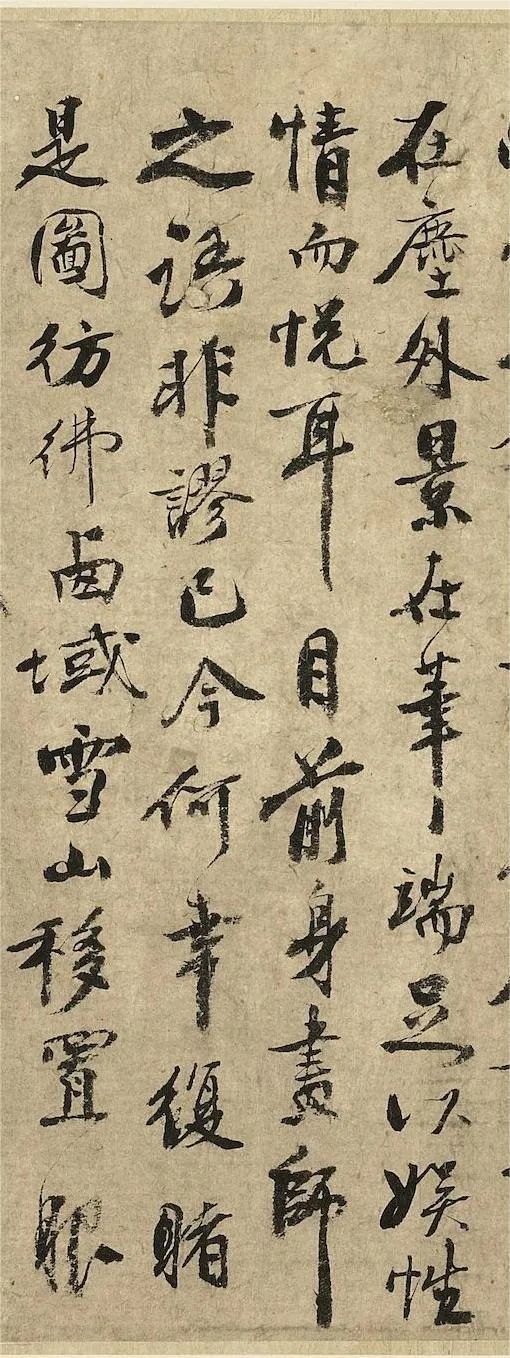 在塵外景在筆端足以娛性
情而悅耳目前身畫師
之語非謬已今何幸復睹
是圖彷彿西域雪山移置眼